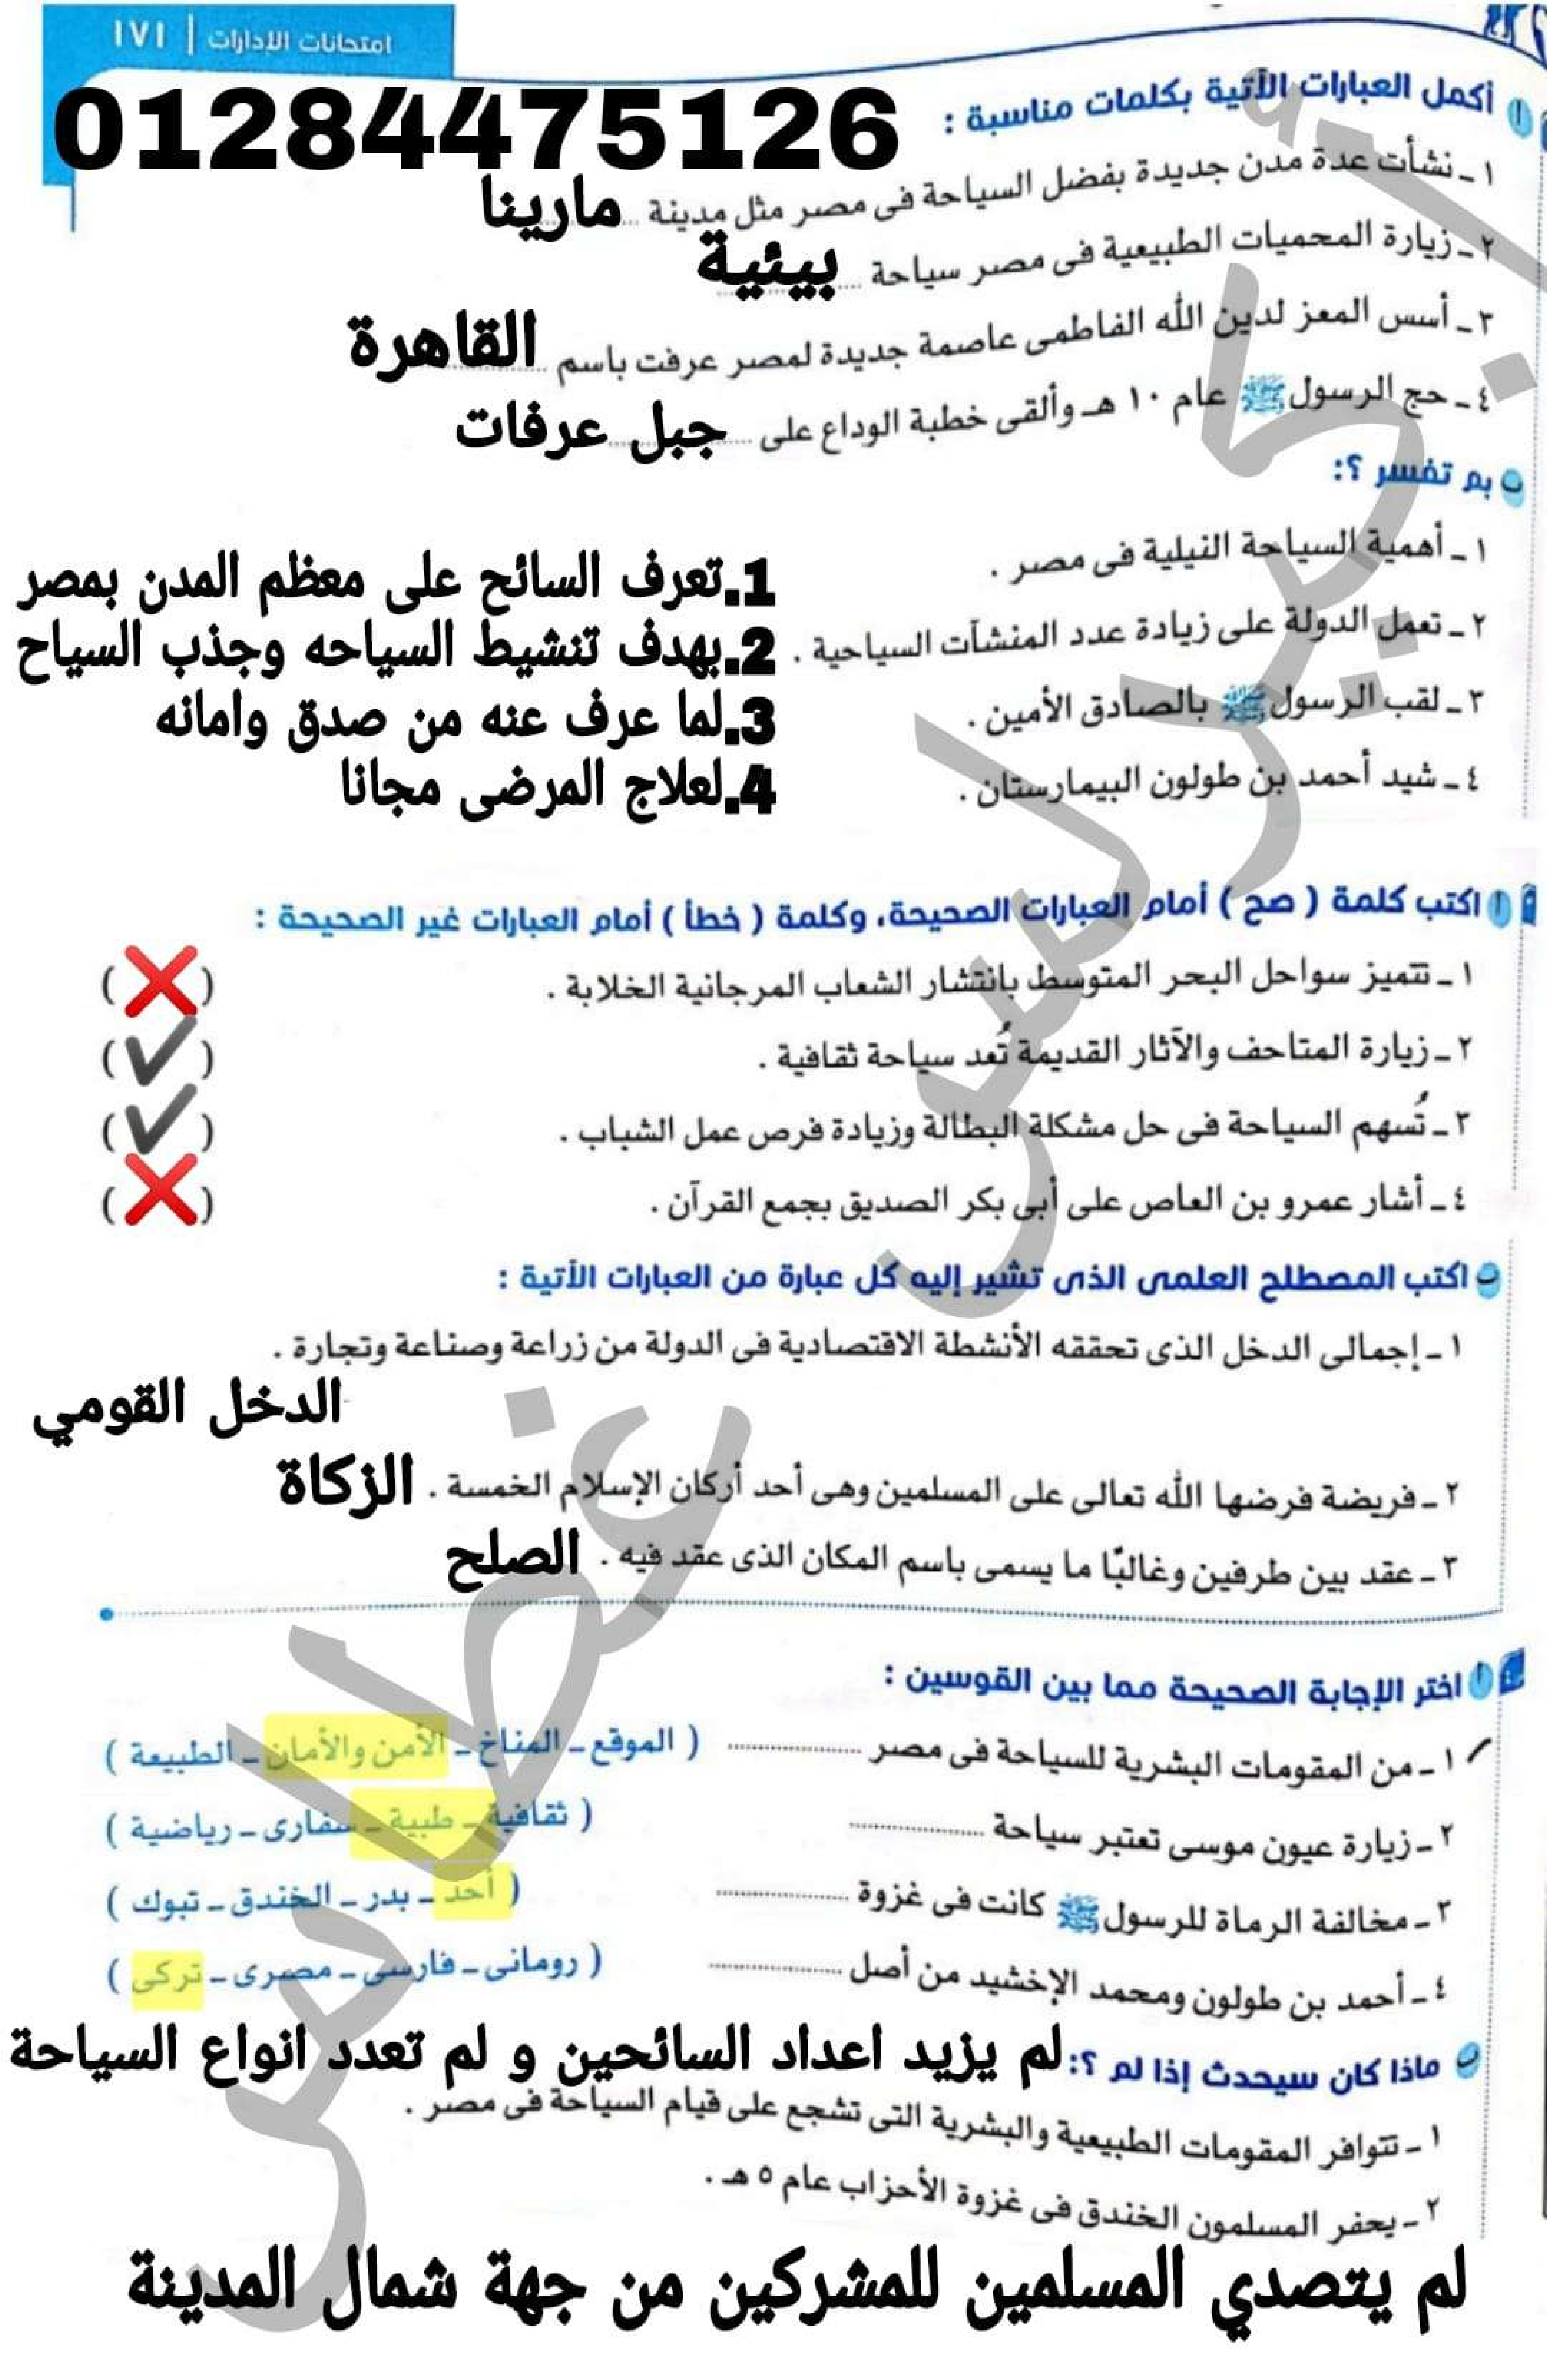 امتحانات الإدارات | ١٧١
01284475126
أ أكمل العبارات الأتية بكلمات مناسبة :
١ ـ نشأت عدة مدن جديدة بفضل السياحة فى مصر مثل مدينة ........ مارينا
٢ ـ زيارة المحميات الطبيعية فى مصر سياحة ........ بيئية
٣ ـ أسس المعز لدين الله الفاطمى عاصمة جديدة لمصر عرفت باسم ........ القاهرة
٤ ـ حج الرسول ﷺ عام ١٠ هـ وألقى خطبة الوداع على ........ جبل عرفات
ب بم تفسر ؟:
١ ـ أهمية السياحة النيلية فى مصر .
1.تعرف السائح على معظم المدن بمصر
٢ ـ تعمل الدولة على زيادة عدد المنشآت السياحية .
2.بهدف تنشيط السياحه وجذب السياح
٣ ـ لقب الرسول ﷺ بالصادق الأمين .
3.لما عرف عنه من صدق وامانه
٤ ـ شيد أحمد بن طولون البيمارستان .
4.لعلاج المرضى مجانا
أ اكتب كلمة ( صح ) أمام العبارات الصحيحة، وكلمة ( خطأ ) أمام العبارات غير الصحيحة :
١ ـ تتميز سواحل البحر المتوسط بإنتشار الشعاب المرجانية الخلابة . (❌)
٢ ـ زيارة المتاحف والآثار القديمة تُعد سياحة ثقافية . (✔)
٣ ـ تُسهم السياحة فى حل مشكلة البطالة وزيادة فرص عمل الشباب . (✔)
٤ ـ أشار عمرو بن العاص على أبى بكر الصديق بجمع القرآن . (❌)
ب اكتب المصطلح العلمى الذى تشير إليه كل عبارة من العبارات الأتية :
١ ـ إجمالى الدخل الذى تحققه الأنشطة الاقتصادية فى الدولة من زراعة وصناعة وتجارة .
الدخل القومي
٢ ـ فريضة فرضها الله تعالى على المسلمين وهى أحد أركان الإسلام الخمسة . الزكاة
٣ ـ عقد بين طرفين وغالبًا ما يسمى باسم المكان الذى عقد فيه . الصلح
أ اختر الإجابة الصحيحة مما بين القوسين :
١ ـ من المقومات البشرية للسياحة فى مصر ........ ( الموقع ـ المناخ ـ الأمن والأمان ـ الطبيعة )
٢ ـ زيارة عيون موسى تعتبر سياحة ........ ( ثقافية ـ طبية ـ سفارى ـ رياضية )
٣ ـ مخالفة الرماة للرسول ﷺ كانت فى غزوة ........ ( أحد ـ بدر ـ الخندق ـ تبوك )
٤ ـ أحمد بن طولون ومحمد الإخشيد من أصل ........ ( رومانى ـ فارسى ـ مصرى ـ تركى )
ب ماذا كان سيحدث إذا لم ؟: لم يزيد اعداد السائحين و لم تعدد انواع السياحة
١ ـ تتوافر المقومات الطبيعية والبشرية التى تشجع على قيام السياحة فى مصر .
٢ ـ يحفر المسلمون الخندق فى غزوة الأحزاب عام ٥ هـ .
لم يتصدي المسلمين للمشركين من جهة شمال المدينة
أ.كيرلس غطاس